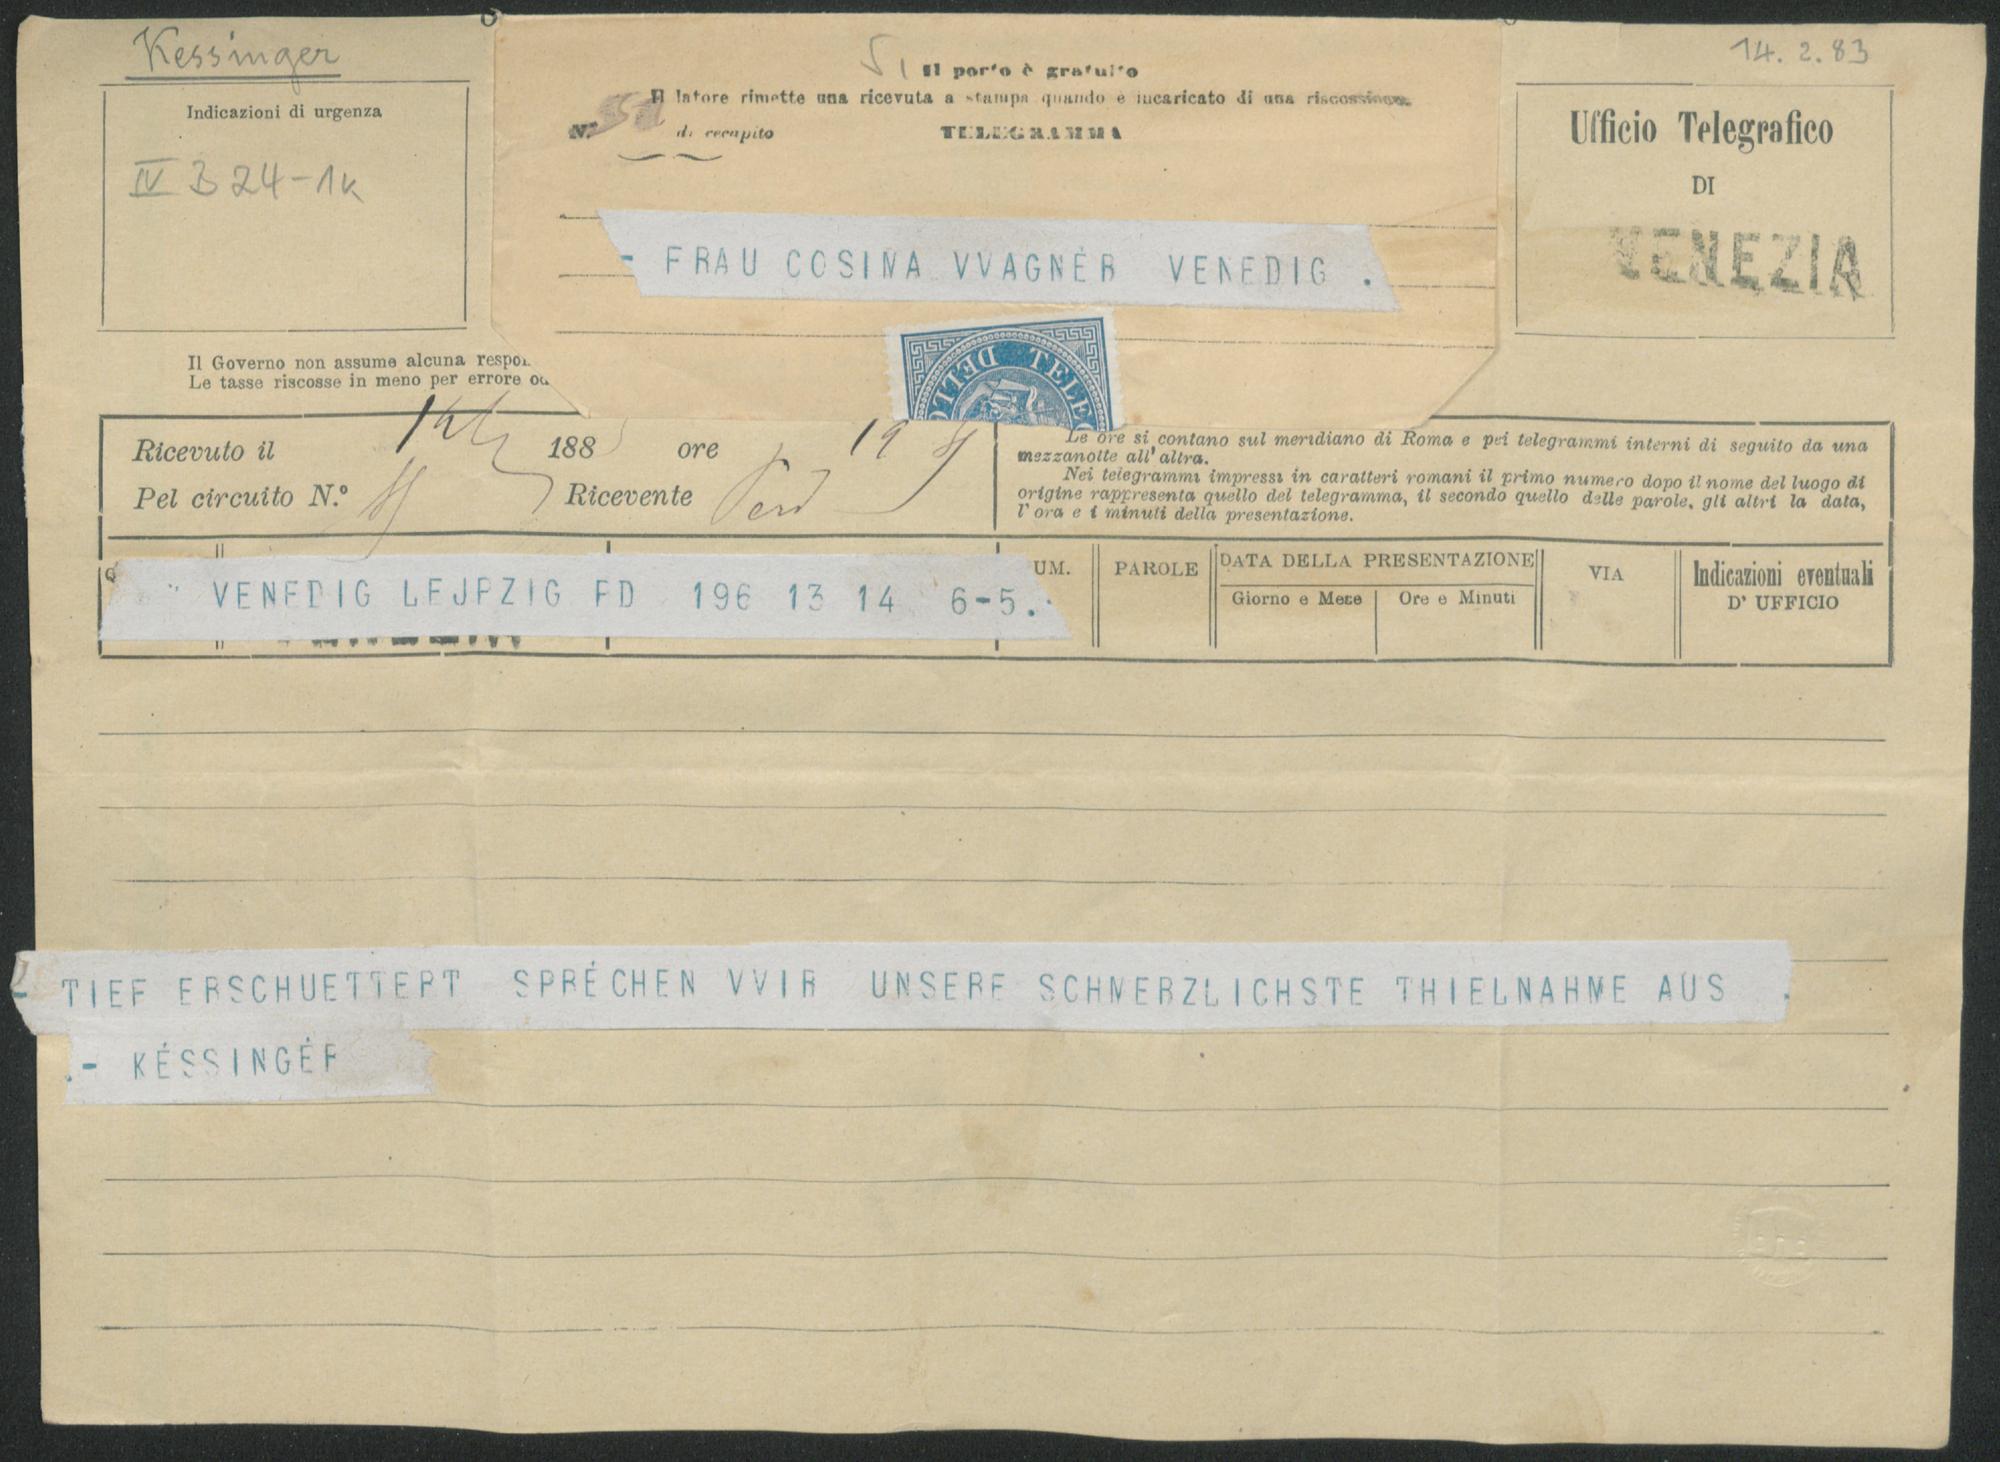 Kessinger
14. 2. 83
Indicazioni di urgenza
IV B 24-1k
Il porto è gratuito
Il latore rimette una ricevuta a stampa quando è incaricato di una riscossione.
N.° di recapito TELEGRAMMA
- FRAU COSIMA VVAGNÉR VENEDIG .
Ufficio Telegrafico
DI
VENEZIA
Il Governo non assume alcuna respon
Le tasse riscosse in meno per errore od
TELE
DEI TELE
Ricevuto il 188 ore 19
Pel circuito N.° Ricevente
Le ore si contano sul meridiano di Roma e pei telegrammi interni di seguito da una
mezzanotte all'altra.
Nei telegrammi impressi in caratteri romani il primo numero dopo il nome del luogo di
origine rappresenta quello del telegramma, il secondo quello delle parole, gli altri la data,
l'ora e i minuti della presentazione.
VENEDIG LEJPZIG FD 196 13 14 6-5.
UM. PAROLE DATA DELLA PRESENTAZIONE VIA Indicazioni eventuali
Giorno e Mese Ore e Minuti D' UFFICIO
- TIEF ERSCHUETTERT SPRÉCHEN VVIR UNSERE SCHMERZLICHSTE THIELNAHME AUS .
.- KÉSSINGÉR